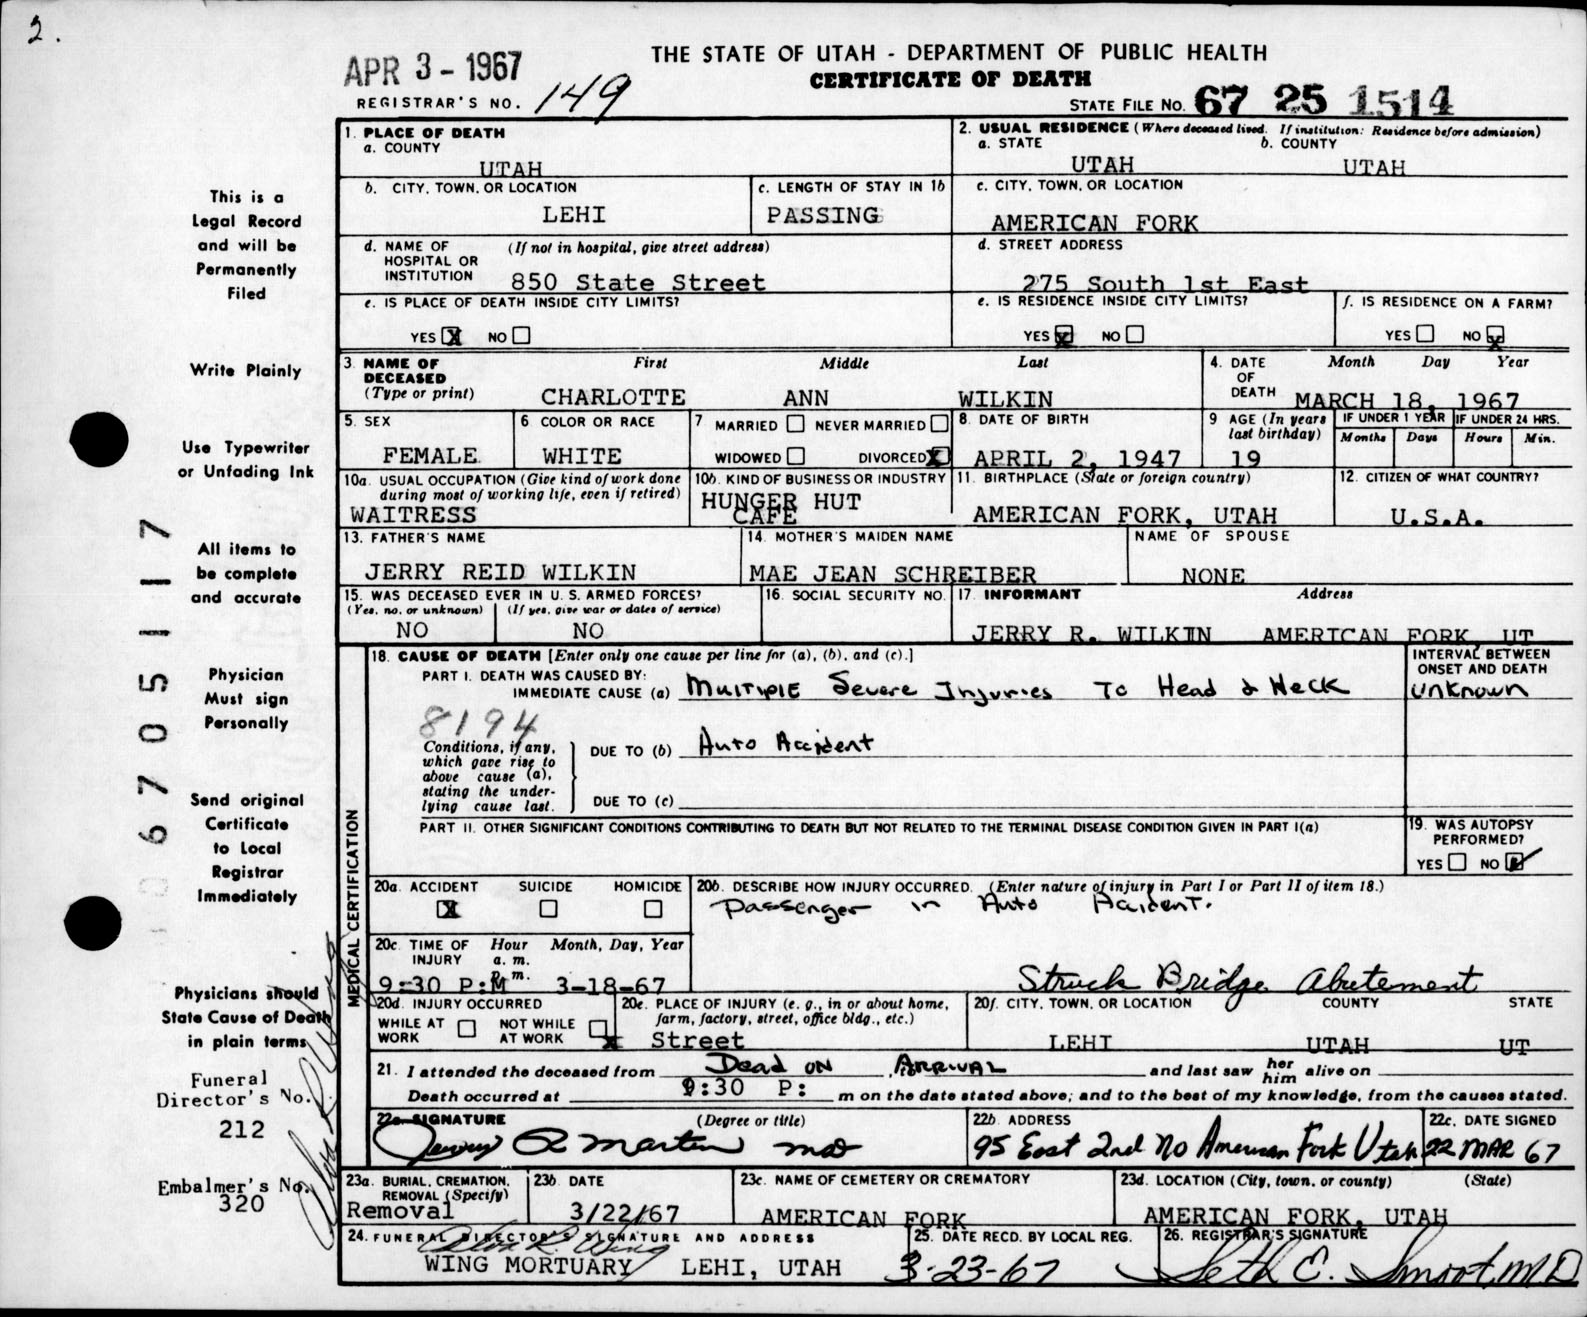 2.
APR 3 - 1967
THE STATE OF UTAH - DEPARTMENT OF PUBLIC HEALTH
CERTIFICATE OF DEATH
REGISTRAR'S NO. 149
STATE FILE NO. 67 25 1514
This is a
Legal Record
and will be
Permanently
Filed
Write Plainly
Use Typewriter
or Unfading Ink
All items to
be complete
and accurate
Physician
Must sign
Personally
Send original
Certificate
to Local
Registrar
Immediately
Physicians should
State Cause of Death
in plain terms
Funeral
Director's No.
212
Embalmer's No.
320
067051 17
1. PLACE OF DEATH
a. COUNTY
UTAH
2. USUAL RESIDENCE (Where deceased lived. If institution: Residence before admission)
a. STATE b. COUNTY
UTAH UTAH
b. CITY, TOWN, OR LOCATION
LEHI
c. LENGTH OF STAY IN 1b
PASSING
c. CITY, TOWN, OR LOCATION
AMERICAN FORK
d. NAME OF (If not in hospital, give street address)
HOSPITAL OR
INSTITUTION 850 State Street
d. STREET ADDRESS
275 South 1st East
e. IS PLACE OF DEATH INSIDE CITY LIMITS?
YES X NO
e. IS RESIDENCE INSIDE CITY LIMITS?
YES X NO
f. IS RESIDENCE ON A FARM?
YES NO X
3. NAME OF First Middle Last
DECEASED
(Type or print) CHARLOTTE ANN WILKIN
4. DATE Month Day Year
OF
DEATH MARCH 18, 1967
5. SEX
FEMALE
6 COLOR OR RACE
WHITE
7 MARRIED NEVER MARRIED
WIDOWED DIVORCED X
8. DATE OF BIRTH
APRIL 2, 1947
9 AGE (In years
last birthday)
19
IF UNDER 1 YEAR IF UNDER 24 HRS.
Months Days Hours Min.
10a. USUAL OCCUPATION (Give kind of work done
during most of working life, even if retired)
WAITRESS
10b. KIND OF BUSINESS OR INDUSTRY
HUNGER HUT
CAFE
11. BIRTHPLACE (State or foreign country)
AMERICAN FORK, UTAH
12. CITIZEN OF WHAT COUNTRY?
U.S.A.
13. FATHER'S NAME
JERRY REID WILKIN
14. MOTHER'S MAIDEN NAME
MAE JEAN SCHREIBER
NAME OF SPOUSE
NONE
15. WAS DECEASED EVER IN U. S. ARMED FORCES?
(Yes, no, or unknown) (If yes, give war or dates of service)
NO NO
16. SOCIAL SECURITY NO.
17. INFORMANT Address
JERRY R. WILKIN AMERICAN FORK, UT
MEDICAL CERTIFICATION
18. CAUSE OF DEATH [Enter only one cause per line for (a), (b), and (c).]
INTERVAL BETWEEN
ONSET AND DEATH
PART I. DEATH WAS CAUSED BY:
IMMEDIATE CAUSE (a) Multiple Severe Injuries To Head & Neck
unknown
8194
Conditions, if any,
which gave rise to
above cause (a),
stating the under-
lying cause last.
DUE TO (b) Auto Accident
DUE TO (c)
PART II. OTHER SIGNIFICANT CONDITIONS CONTRIBUTING TO DEATH BUT NOT RELATED TO THE TERMINAL DISEASE CONDITION GIVEN IN PART I(a)
19. WAS AUTOPSY
PERFORMED?
YES NO
20a. ACCIDENT SUICIDE HOMICIDE
X
20b. DESCRIBE HOW INJURY OCCURRED. (Enter nature of injury in Part I or Part II of item 18.)
Passenger in Auto Accident.
Struck Bridge Abutement
20c. TIME OF Hour Month, Day, Year
INJURY a. m.
p. m.
9:30 P:M 3-18-67
20d. INJURY OCCURRED
WHILE AT WORK NOT WHILE AT WORK X
20e. PLACE OF INJURY (e. g., in or about home,
farm, factory, street, office bldg., etc.)
Street
20f. CITY, TOWN, OR LOCATION COUNTY STATE
LEHI UTAH UT
21. I attended the deceased from Dead on Arrival and last saw her him alive on
Death occurred at 9:30 P: m on the date stated above; and to the best of my knowledge, from the causes stated.
22a. SIGNATURE (Degree or title)
MD
22b. ADDRESS
95 East 2nd No American Fork Utah
22c. DATE SIGNED
22 MAR 67
23a. BURIAL, CREMATION,
REMOVAL (Specify)
Removal
23b. DATE
3/22/67
23c. NAME OF CEMETERY OR CREMATORY
AMERICAN FORK
23d. LOCATION (City, town, or county) (State)
AMERICAN FORK, UTAH
24. FUNERAL DIRECTOR'S SIGNATURE AND ADDRESS
WING MORTUARY LEHI, UTAH
25. DATE RECD. BY LOCAL REG.
3-23-67
26. REGISTRAR'S SIGNATURE
Seth E. Smoot, MD